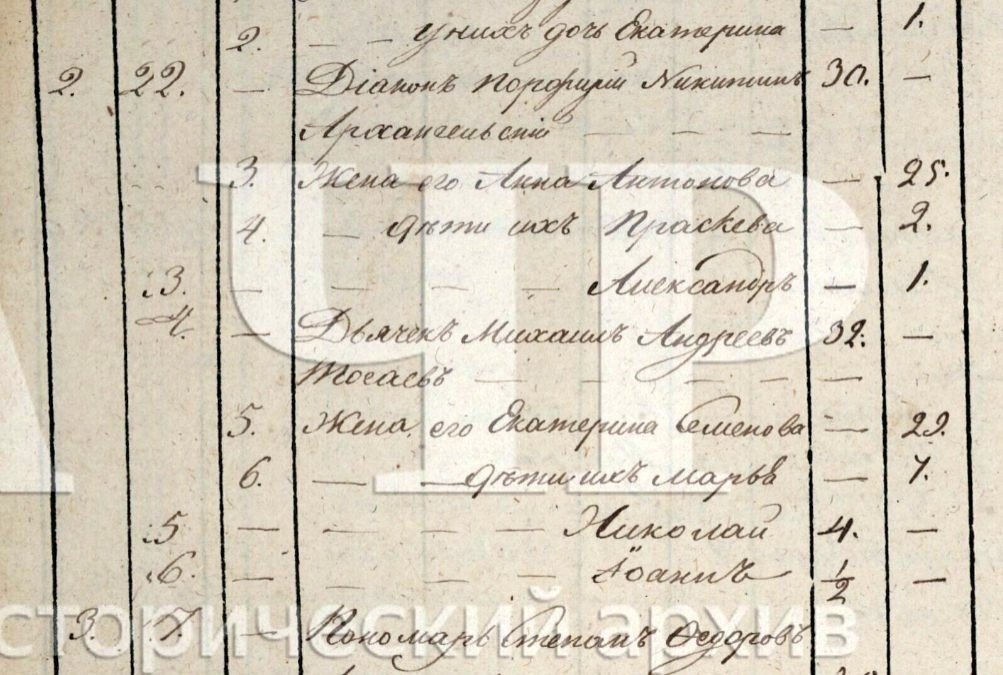 2. — — у нихъ дочь Екатерина — 1.
2. 22. — Діаконъ Порфирій Никитинъ 30. —
Архангельскій — — —
3. Жена его Анна Антонова — 25.
4. — дѣти ихъ Праскева — 2.
3. — — — — Александръ — 1.
4. — Дьячекъ Михаилъ Андреевъ 32. —
Тогаевъ — — — — — —
5. Жена его Екатерина Семенова — 29.
6. — — дѣти ихъ Марья — 7.
5 — — — — Николай 4. —
6. — — — — Іоаннъ 1/2 —
3. 7. — Пономарь Степанъ Ѳедоровъ
ЧР
сторический архив